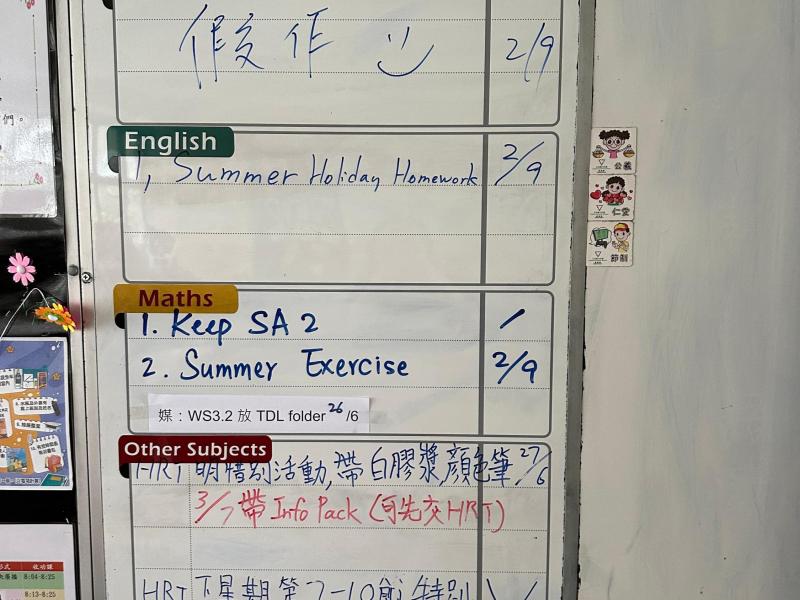 假作 :) 2/9
English
1, Summer Holiday Homework 2/9
Maths
1. Keep SA 2 /
2. Summer Exercise 2/9
媒：WS3.2 放 TDL folder 26/6
Other Subjects
HRT 明惜別活動,帶白膠漿,顏色筆 27/6
3/7 帶 Info Pack (可先交HRT)
HRT 下星期第7-10節 特別
們。
公義
仁愛
節制
收功課
8:04-8:25
8:13-8:25